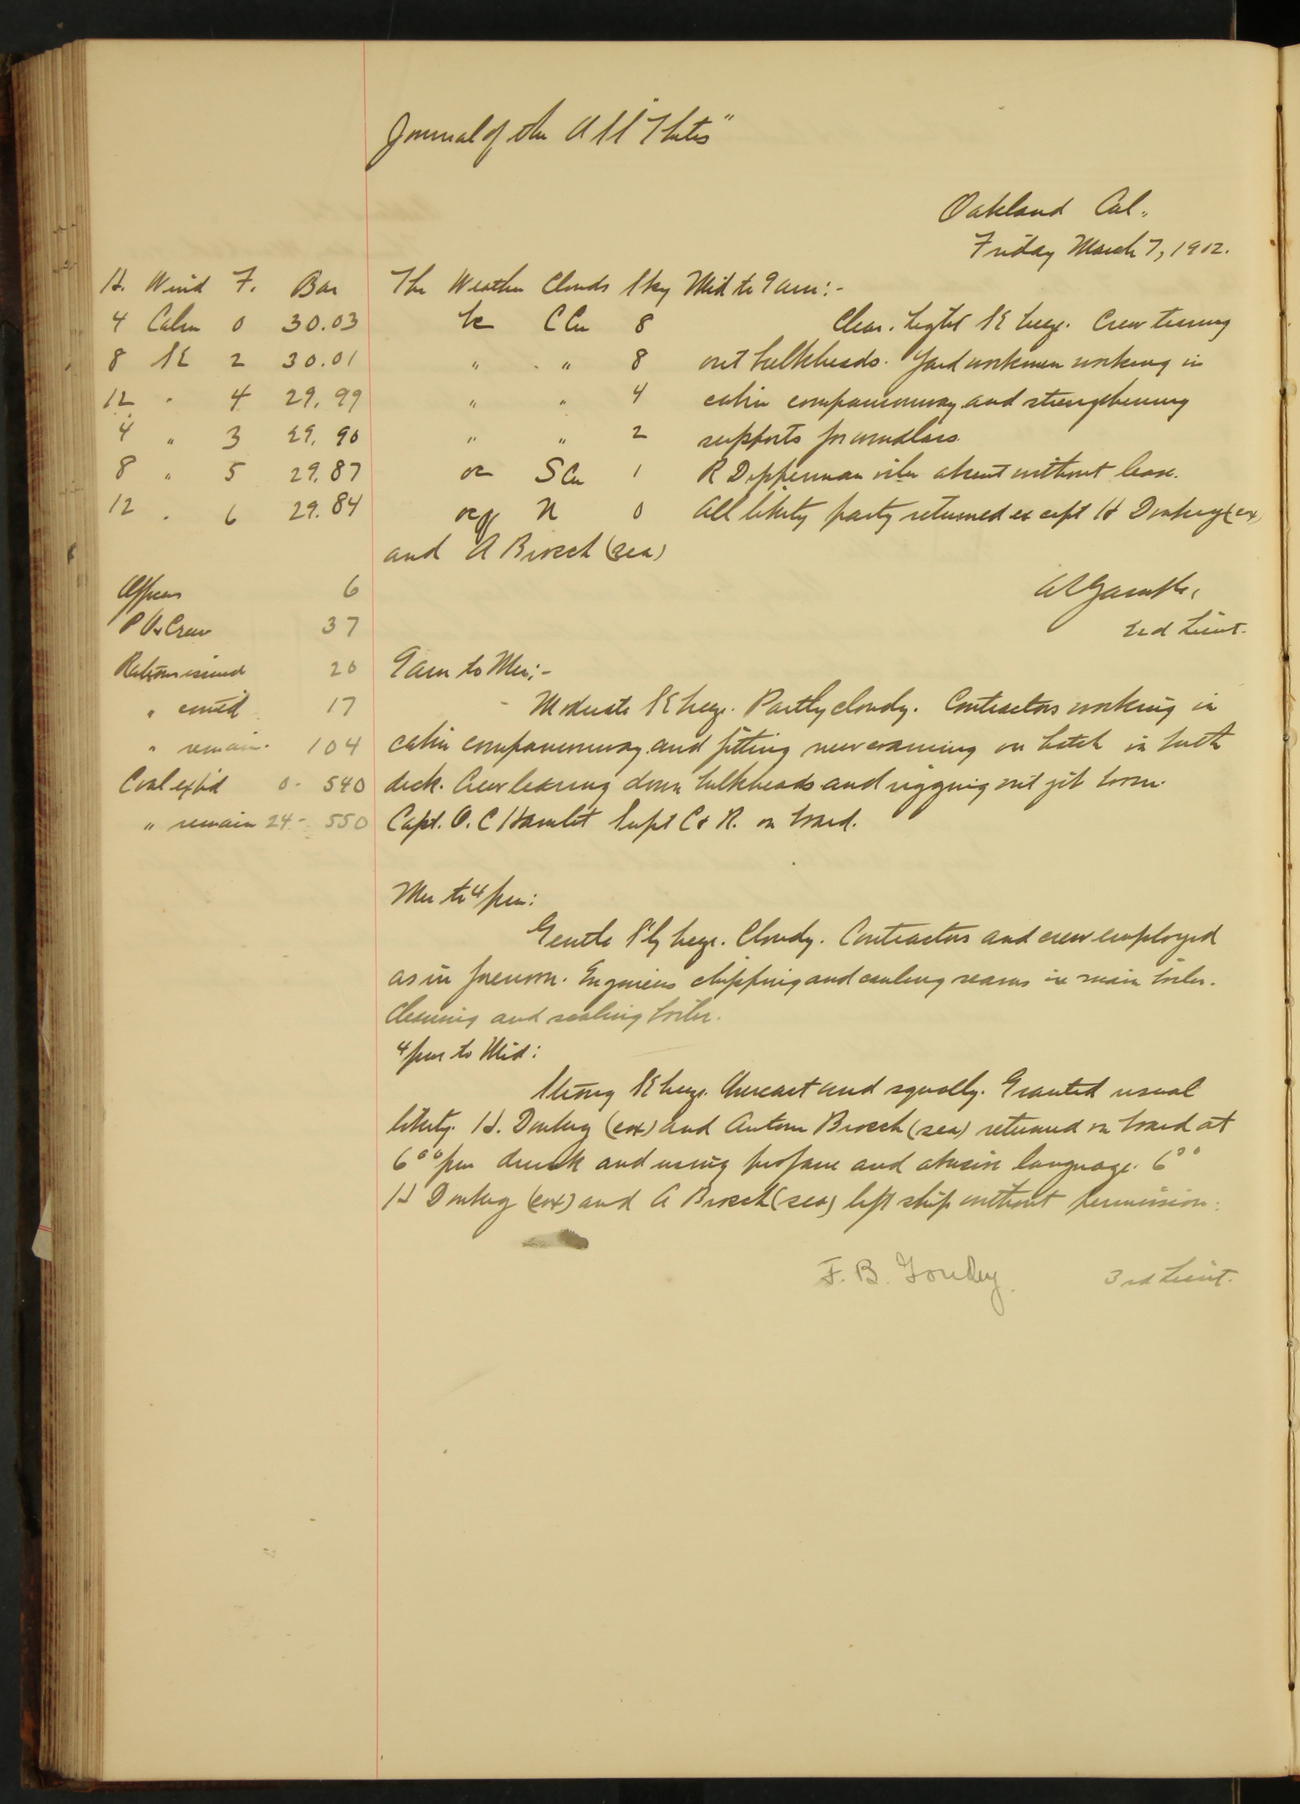 Journal of the U.S.S. "Thetis"
Oakland Cal.,
Friday March 7, 1902.
H. Wind F. Bar The Weather Clouds Sky Mid to 9 am:-
4 Calm 0 30.03 bc C Cu 8 Clear. Light SE breeze. Crew tearing
8 SE 2 30.01 " " 8 out bulkheads. Yard workmen working in
12 " 4 29.99 " " 4 cabin companionway and strengthening
4 " 3 29.90 " " 2 supports for windlass.
8 " 5 29.87 oc S Cu 1 R Dipperman absent without leave.
12 " 6 29.84 ocq N 0 All liberty party returned except H Donberg (cox)
and A Brosch (sea)
2nd Lieut.
Officers 6
P.O. & Crew 37
Rations issued 20 9 am to Mer:-
" com'd 17 Moderate SE breeze. Partly cloudy. Contractors working in
" remain. 104 cabin companionway and fitting new coaming on hatch in berth
Coal exp'd 0 - 540 deck. Crew tearing down bulkheads and rigging out jib boom.
" remain 24 - 550 Capt. O. C Hamlet Supt C & R. on board.
Mer to 4 pm:
Gentle S'ly breeze. Cloudy. Contractors and crew employed
as in forenoon. Engineers chipping and caulking seams in main boiler.
Cleaning and scaling boiler.
4 pm to Mid:
Strong SE breeze. Overcast and squally. Granted usual
liberty. H. Donberg (cox) and Anton Brosch (sea) returned on board at
6⁰⁰ pm drunk and using profane and abusive language. 6²⁰
H Donberg (cox) and A Brosch (sea) left ship without permission.
F. B. 3rd Lieut.